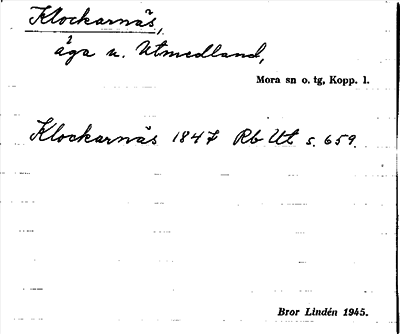 Klockarnäs,
äga u. Utmedland,
Mora sn o. tg, Kopp. l.
Klockarnäs 1847 Rb Ut s. 659.
Bror Lindén 1945.